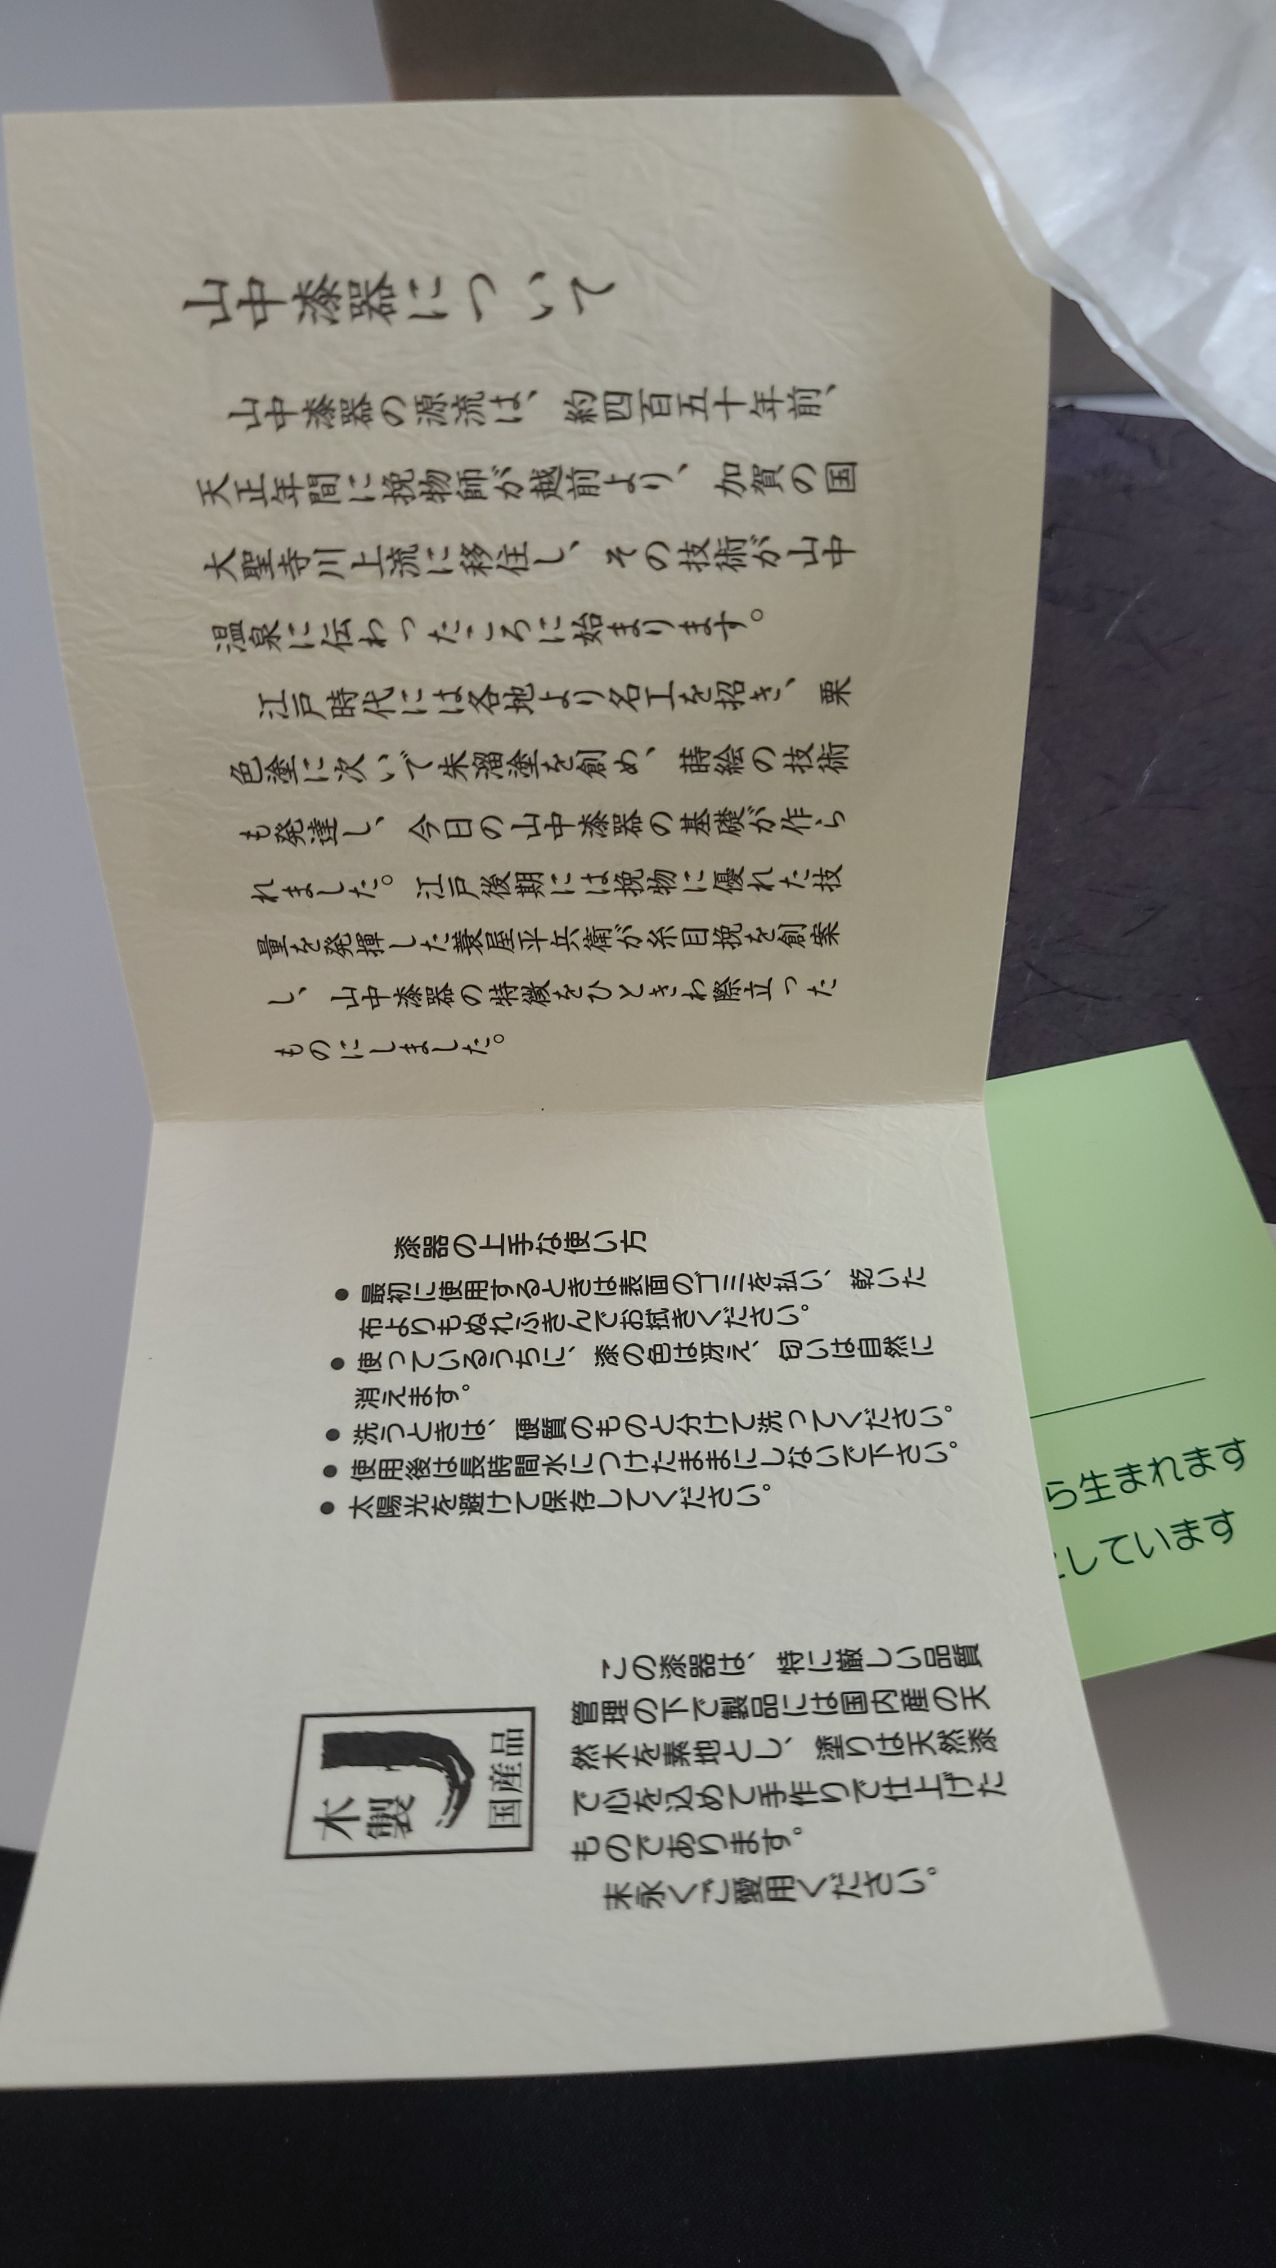 山中漆器について
山中漆器の源流は、約四百五十年前、
天正年間に挽物師が越前より、加賀の国
大聖寺川上流に移住し、その技術が山中
温泉に伝わったころに始まります。
江戸時代には各地より名工を招き、栗
色塗に次いで朱溜塗を創め、蒔絵の技術
も発達し、今日の山中漆器の基礎が作ら
れました。江戸後期には挽物に優れた技
量を発揮した蓑屋平兵衛が糸目挽を創案
し、山中漆器の特徴をひときわ際立った
ものにしました。
漆器の上手な使い方
●最初に使用するときは表面のゴミを払い、乾いた
布よりもぬれふきんでお拭きください。
●使っているうちに、漆の色は冴え、匂いは自然に
消えます。
●洗うときは、硬質のものと分けて洗ってください。
●使用後は長時間水につけたままにしないで下さい。
●太陽光を避けて保存してください。
木製
国産品
この漆器は、特に厳しい品質
管理の下で製品には国内産の天
然木を素地とし、塗りは天然漆
で心を込めて手作りで仕上げた
ものであります。
末永くご愛用ください。
ら生まれます
しています